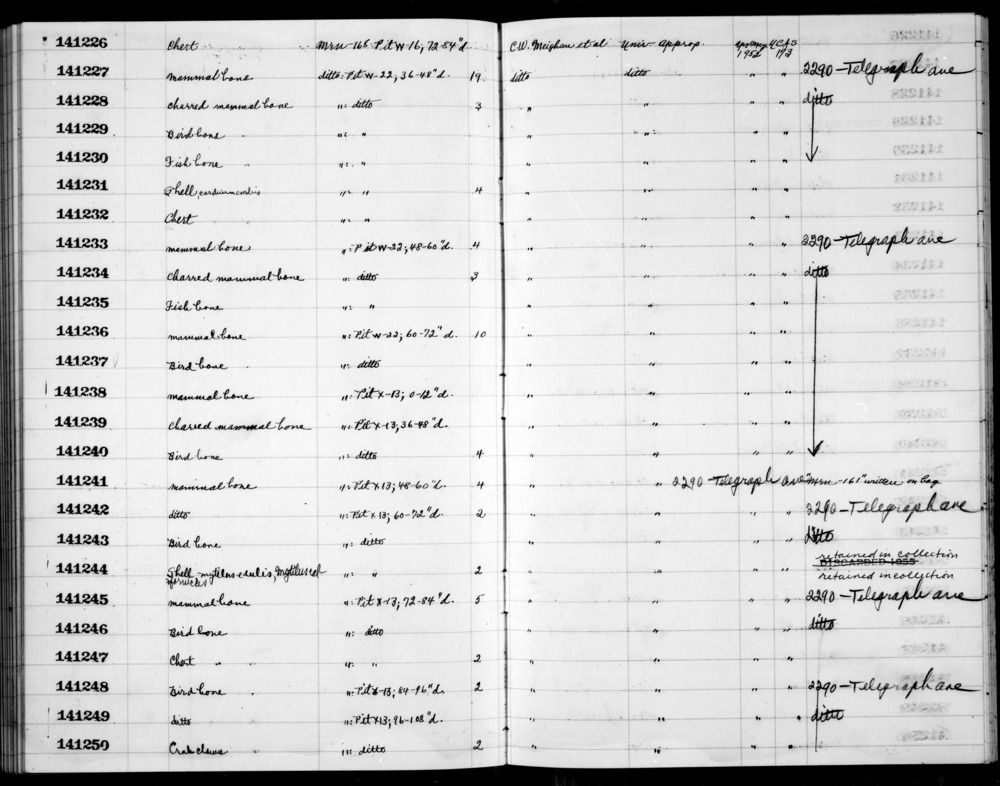 141226 Chert Mrn-168 Pit W-16, 72-84"d. C.W. Meighan et al Univ. approp. 1952 UCAS 2290-Telegraph ave
141227 mammal bone ditto: Pit W-22, 36-48"d. 19 ditto ditto " " 2290-Telegraph ave
141228 charred mammal bone ": ditto 3 " " " " ditto
141229 Bird bone ": " " " " "
141230 Fish bone " ": " " " " "
141231 Shell, cardium corbis ": " 4 " " " "
141232 Chert ": " " " " "
141233 mammal bone ": Pit W-22; 48-60"d. 4 " " " " 2290-Telegraph ave
141234 Charred mammal bone ": ditto 3 " " " " ditto
141235 Fish bone ": " " " " "
141236 mammal bone ": Pit W-22; 60-72"d. 10 " " " "
141237 Bird bone ": ditto " " " "
141238 mammal bone ": Pit X-13; 0-12"d. " " " "
141239 Charred mammal bone ": Pit X-13, 36-48"d. " " " "
141240 Bird bone ": ditto 4 " " " "
141241 mammal bone ": Pit X13; 48-60"d. 4 " 2290-Telegraph ave "Mrn-161" written on bag
141242 ditto ": Pit X13; 60-72"d. 2 " " " " 2290-Telegraph ave
141243 Bird bone ": ditto " " " " ditto
retained in collection
141244 Shell, mytilus edulis, Mytilus ": " 2 " " " " DISCARDED 1955
retained in collection
141245 mammal bone ": Pit X-13; 72-84"d. 5 " " " " 2290-Telegraph ave
141246 Bird bone ": ditto " " " " ditto
141247 Chert " " ": " 2 " " " "
141248 Bird bone " ": Pit X-13; 84-96"d. 2 " " " " 2290-Telegraph ave
141249 ditto ": Pit X13; 96-108"d. " " " " ditto
141250 Crab claws ": ditto 2 " " " "